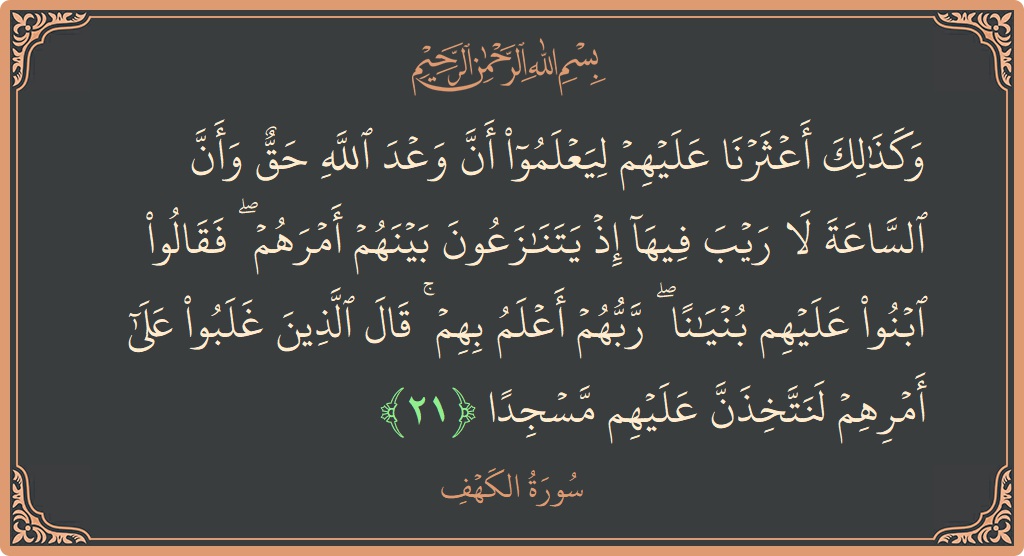 بِسْمِ اللَّهِ الرَّحْمَٰنِ الرَّحِيمِ
وَكَذَٰلِكَ أَعْثَرْنَا عَلَيْهِمْ لِيَعْلَمُوٓا۟ أَنَّ وَعْدَ ٱللَّهِ حَقٌّ وَأَنَّ
ٱلسَّاعَةَ لَا رَيْبَ فِيهَآ إِذْ يَتَنَـٰزَعُونَ بَيْنَهُمْ أَمْرَهُمْ ۖ فَقَالُوا۟
ٱبْنُوا۟ عَلَيْهِم بُنْيَـٰنًا ۖ رَّبُّهُمْ أَعْلَمُ بِهِمْ ۚ قَالَ ٱلَّذِينَ غَلَبُوا۟ عَلَىٰٓ
أَمْرِهِمْ لَنَتَّخِذَنَّ عَلَيْهِم مَّسْجِدًا ﴿٢١﴾
سُورَةُ الكَهْفِ